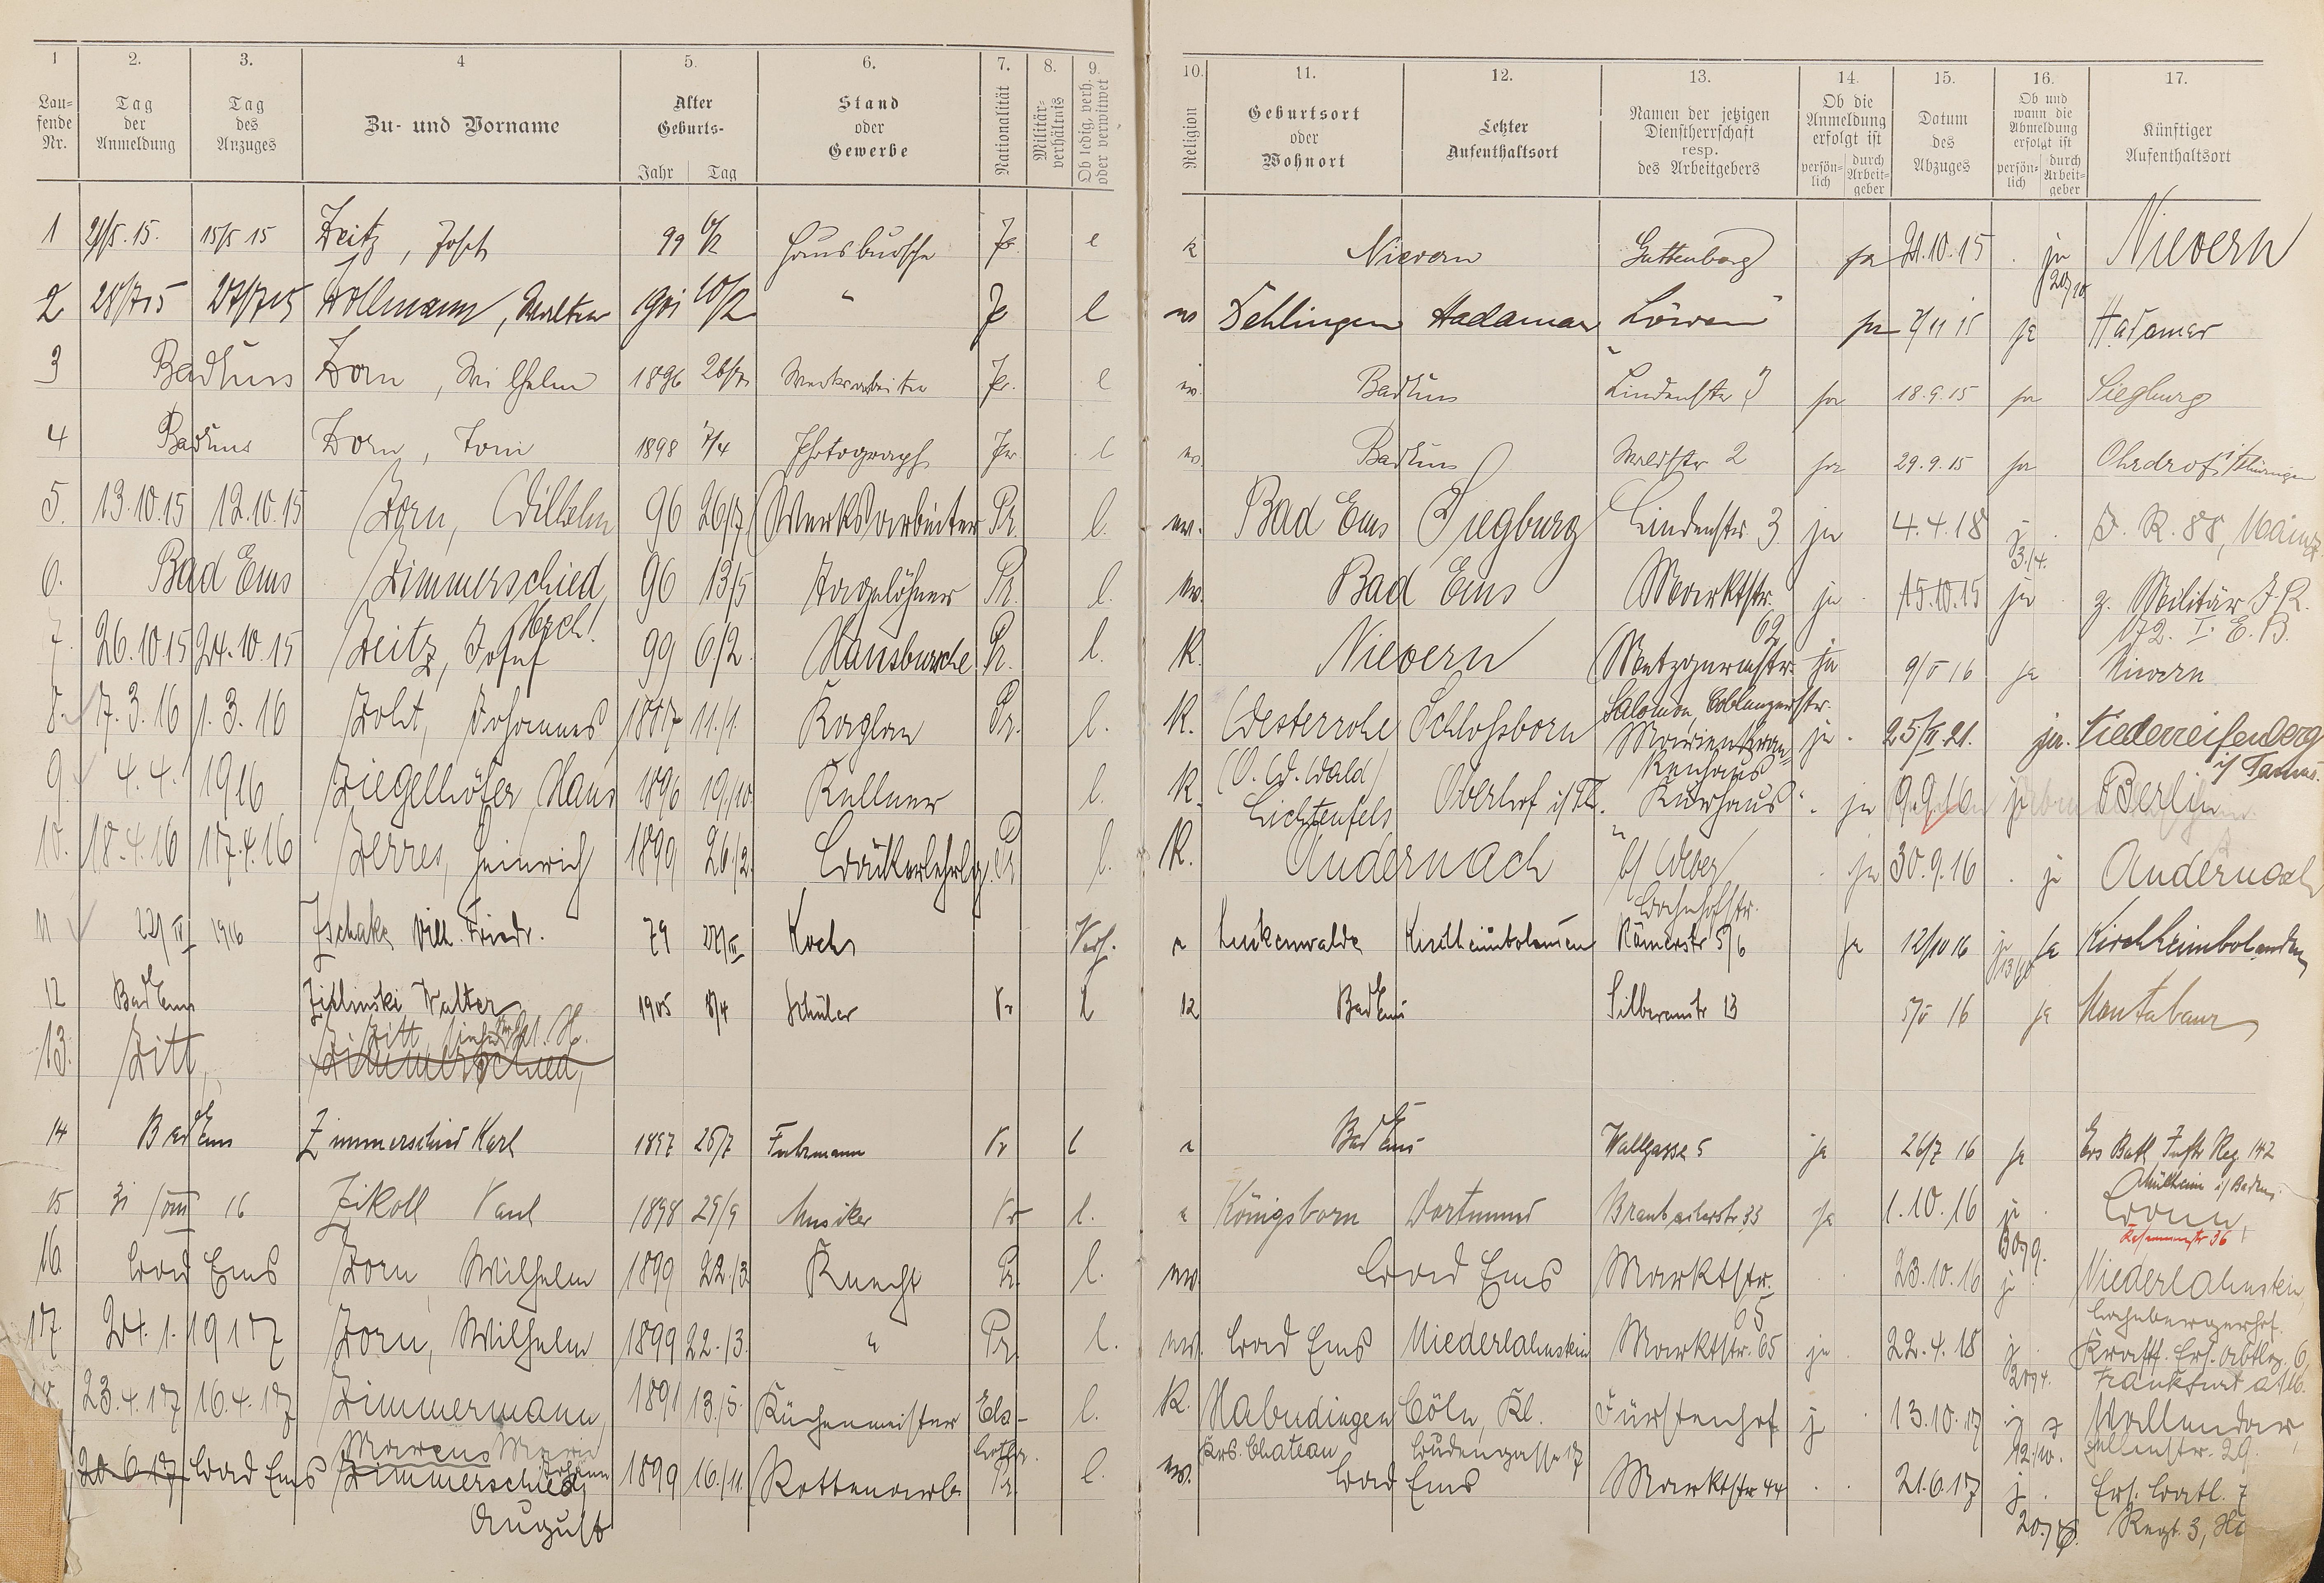 1 2. 3. 4 5. 6. 7. 8. 9. 10. 11. 12. 13. 14. 15. 16. 17.
Laufende Nr. Tag der Anmeldung Tag des Anzuges Zu- und Vorname Alter Geburts- Jahr Tag Stand oder Gewerbe Nationalität Militärverhältnis Ob ledig, verh. oder verwitwet Religion Geburtsort oder Wohnort Letzter Aufenthaltsort Namen der jetzigen Dienstherrschaft resp. des Arbeitgebers Ob die Anmeldung erfolgt ist persönlich durch Arbeitgeber Datum des Abzuges Ob und wann die Abmeldung erfolgt ist persönlich durch Arbeitgeber Künftiger Aufenthaltsort
1 15/5 15 Zeitz, Josef 99 6/2 Hausbursche Pr. l k Nievern Guttenberg ja 21.10.15 ja Nievern
20/10
2 28/7 15 27/7 15 Zollmann, Walter 1901 10/2 " Pr l ev Hadamar Löwen ja 2/11 15 ja Hadamar
3 Bad Ems Zorn, Wilhelm 1896 26/7 Werksarbeiter Pr. l ev. Bad Ems Lindenstr 3 ja 18.9.15 ja Siegburg
4 Bad Ems Zorn, Toni 1898 7/4 Photograph Pr l ev. Bad Ems Waldstr 2 ja 29.9.15 ja Ohrdrof i/Thüringen
5. 13.10.15 12.10.15 Zorn, Wilhelm 96 26/7. Werksarbeiter Pr. l. ev. Bad Ems Siegburg Lindenstr. 3 ja 4.4.18 j. J. R. 88, Mainz
3./4.
6. Bad Ems Zimmerschied, 96 13/5 Tagelöhner Pr. l. ev. Bad Ems Marktstr. ja 15.10.15 ja z. Militär J.R.
62 172. I. E. B.
7. 26.10.15 24.10.15 Zeitz, Josef 99 6/2. Hausbursche Pr. l. K. Nievern Metzgermstr. ja 9/5 16 ja Nievern
Salomon, Coblenzerstr.
8. 17.3.16 1.3.16 Zoht, Johannes 1887 11./1. Kaplan Pr. l. K. Westerrohe Schloßborn Marienkran- ja. 25/II.21. ja. Niederreifenberg
(O. W. Wald) kenhaus i/ Taunus.
9. 4.4. 1916 Ziegelhöfer, Hans 1896 19./10. Kellner l. K. Lichtenfels Oberhof i/Th. "Kurhaus" ja 9.9.16 ja Berlin
10. 18.4.16 17.4.16 Zerres, Heinrich 1899 26./2. Bäckerlehrlg. Pr l. K. Andernach b/ Weber ja 30.9.16 ja Andernach
Bahnhofstr.
11 22/IV 1916 Zschake Wilh. Friedr. 79 27/III Koch Verh. e Luckenwalde Kirchheimbolanden Römerstr 5/6 ja 12/10 16 ja Kirchheimbolanden
13/10
12 Bad Ems Zielinski Walter 1905 8/4 Schüler Pr l Bad Ems Silberaustr 13 5/5 16 ja Montabaur
Zitt, siehe
13. Zitt, Zimmerschied,
14 Bad Ems Zimmerschied Karl 1897 25/7 Fuhrmann Pr l e Bad Ems Wallgasse 5 ja 26/7 16 ja Ers Batl Inftr Reg 142
Mülheim i/ Baden.
15 31/VIII 16 Zikoll Paul 1898 29/9 Musiker Pr l. e Königsborn Dortmund Braubacherstr 33 ja 1.10.16 ja. Bonn,
30/9.
16 Bad Ems Zorn, Wilhelm 1899 22./3. Knecht Pr. l. ev. Bad Ems Marktstr. 23.10.16 ja Niederlahnstein,
65
17 24.1.1917 Zorn, Wilhelm 1899 22./3. " Pr. l. ev. Bad Ems Niederlahnstein Marktstr. 65 ja 22.4.18 j. Kraftf. Ers. Abtlg. 6,
20/4. Frankfurt a/M.
18. 23.4.17 16.4.17 Zimmermann, 1891 13./5. Küchenmeister Els- l. K. Habudingen Cöln, Kl. Fürstenhof j 13.10.17 j Vallendar,
Marcus Maria Lothr. Krs. Chateau Budengasse 17 12./10. Hellenstr. 29.
20.6.17 Bad Ems Zimmerschied, Johann 1899 16./11. Rottenarb. Pr. l. ev. Bad Ems Marktstr 44 21.6.17 j. Ers. Batl. 7
August 20./6. Regt. 3,